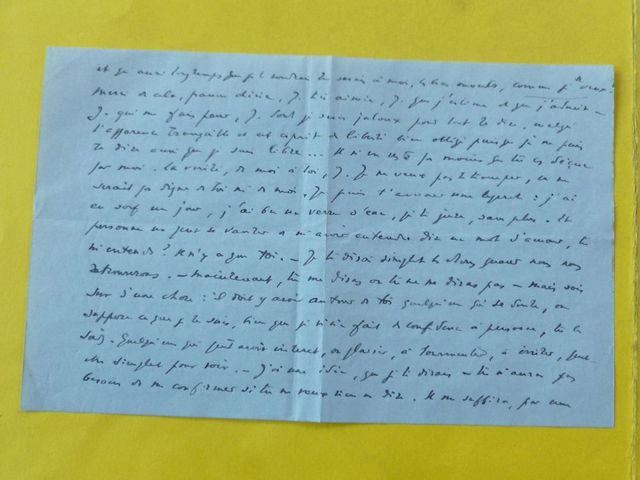 et que aussi longtemps que tu voudras tu seras à moi,
Merci de cela, J. que j'estime et que j'admire –
J. qui me fais peur, J. dont je serais jaloux pour tout te dire, malgré
l'apparence tranquille et cet esprit de liberté bien obligé puisque je ne puis
te dire aussi que je suis libre... Il n'en reste pas moins que tu es
par moi. La vérité, de moi à toi, J. Je ne veux pas te tromper, ce ne
serait pas digne de toi ni de moi. Je puis t'avouer une légèreté : j'ai
eu soif un jour, j'ai bu un verre d'eau, je te jure, sans plus. Et
personne ne peut se vanter de m'avoir entendu dire un mot d'amour, tu
m'entends? Il n'y a que toi. – Je te dirai simplement la chose quand nous nous
retrouverons. – Maintenant, tu me diras ou tu ne me diras pas – mais sois
sûr d'une chose : il doit y avoir autour de toi quelqu'un qui se doute, ou
suppose ce que je te suis, bien que je n'aie fait de confidence à personne, tu le
sais. Quelqu'un qui peut avoir intérêt, ou plaisir, à tourmenter, à irriter, peut-
être simplement pour voir. – J'ai une idée, que je te dirais – tu n'auras pas
besoin de me confirmer si tu ne veux rien me dire. Il me suffira, par un